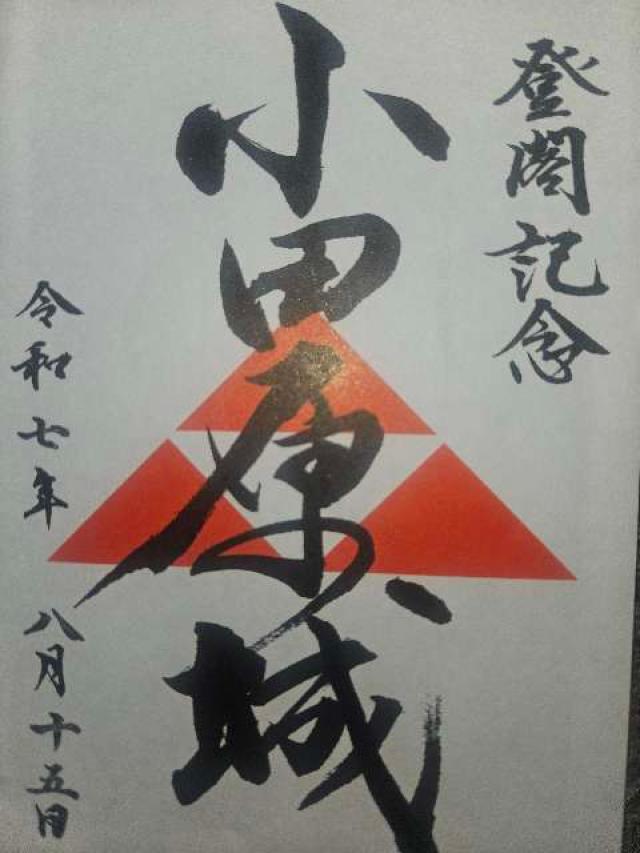 登閣記念
小田原城
令和七年 八月十五日